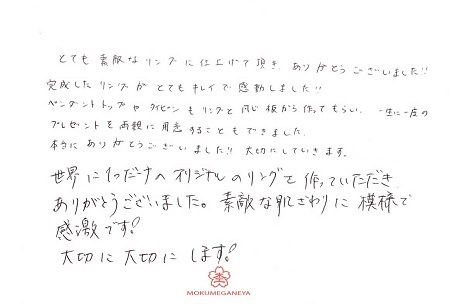 とても素敵なリングに仕上げて頂き、ありがとうございました!!
完成したリングがとてもキレイで感動しました!!
ペンダントトップやタイピンもリングと同じ板から作ってもらい、一生に一度の
プレゼントを両親に用意することもできました。
本当にありがとうございました!! 大切にしていきます。
世界に1つだけのオリジナルのリングを作っていただき
ありがとうございました。素敵な肌ざわりに模様で
感激です!
大切に大切にします!
MOKUMEGANEYA